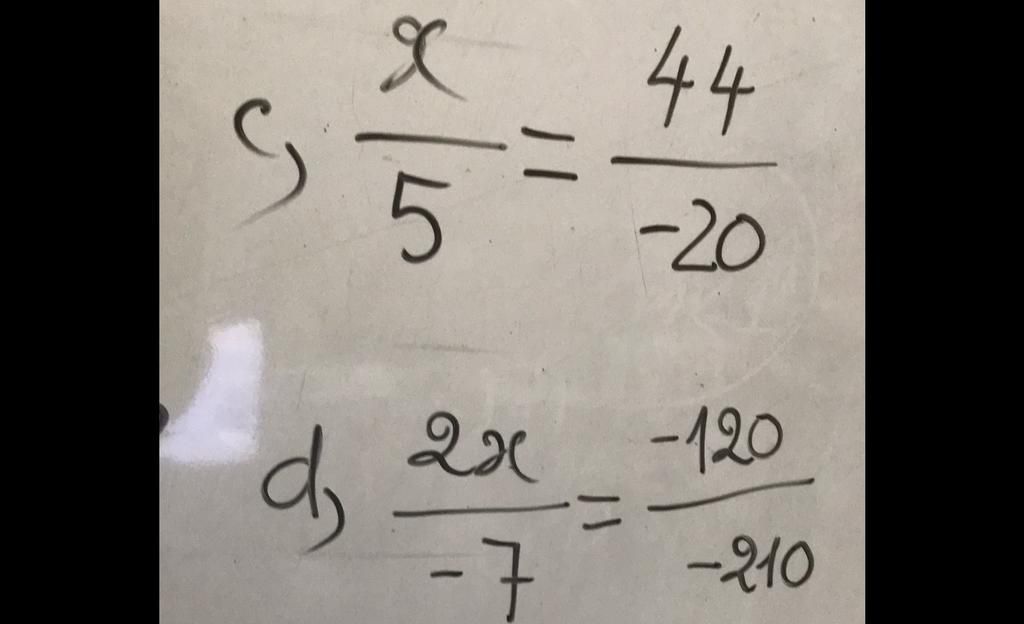 c, x/5 = 44/-20
d, 2x/-7 = -120/-210